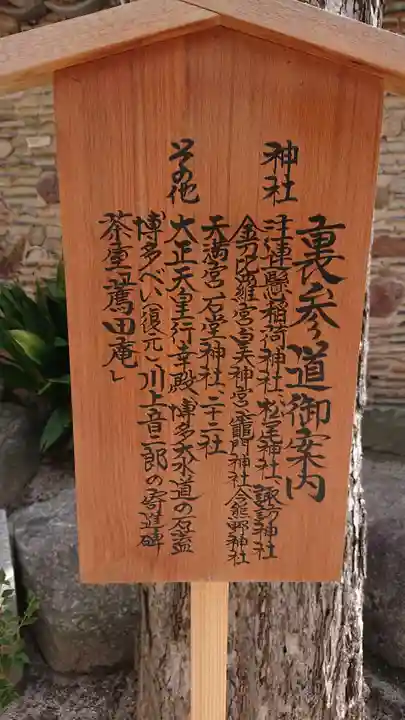 裏参道御案内
神社
注連懸稲荷神社、松尾神社、諏訪神社
金刀比羅宮、白夫神宮、竈門神社、今熊野神社
天満宮、石堂神社、二十二社
その他
大正天皇行幸殿、博多大水道の石蓋
博多べい(復元)川上音二郎の寄進碑
茶室「薦田庵」